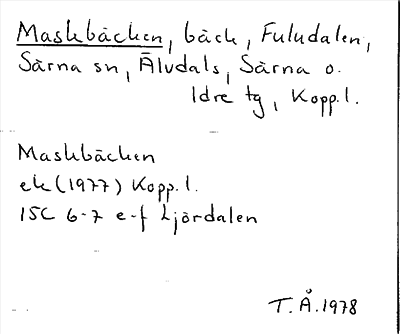 Maskbäcken, bäck, Fuludalen,
Särna sn, Älvdals, Särna o.
Idre tg, Kopp. l.
Maskbäcken
ek (1977) Kopp. l.
15C 6-7 e-f Ljördalen
T. Å. 1978